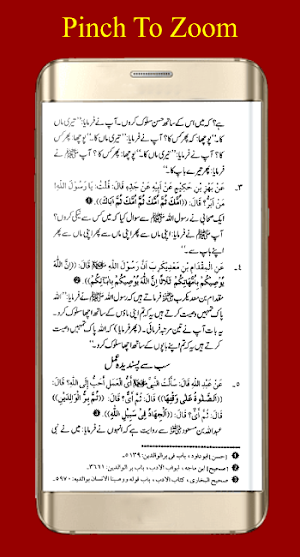 Pinch To Zoom
ہے؟ کہ میں اس کے ساتھ حسن سلوک کروں۔ آپ نے فرمایا: ''تیری ماں
کا۔'' پوچھا: پھر کس کا؟ آپ نے فرمایا: ''تیری ماں کا۔'' پوچھا: پھر کس
کا؟ آپ نے فرمایا: ''تیری ماں کا۔'' پوچھا: پھر کس کا؟ آپ ﷺ نے
فرمایا: پھر تیرے باپ کا۔''
۳۔ عَنْ بَهْزِ بْنِ حَكِيْمٍ عَنْ اَبِيْهِ عَنْ جَدِّهٖ قَالَ: قُلْتُ: يَا رَسُوْلَ اللهِ!
مَنْ اَبَرُّ؟ قَالَ: ((اُمَّكَ ثُمَّ اُمَّكَ ثُمَّ اُمَّكَ ثُمَّ اَبَاكَ)). ❶
ایک صحابی نے رسول اللہ ﷺ سے سوال کیا کہ میں کس سے نیکی کروں؟
آپ ﷺ نے فرمایا: اپنی ماں سے پھر اپنی ماں سے پھر اپنی ماں سے پھر
اپنے باپ سے۔''
۴۔ عَنِ الْمِقْدَامِ بْنِ مَعْدِيْكَرِبَ اَنَّ رَسُوْلَ اللهِ ﷺ قَالَ: ((اِنَّ اللهَ
يُوْصِيْكُمْ بِاُمَّهَاتِكُمْ ثَلَاثًا اِنَّ اللهَ يُوْصِيْكُمْ بِاٰبَائِكُمْ)). ❷
مقدام بن معدیکرب فرماتے ہیں کہ رسول اللہ ﷺ نے فرمایا: ''اللہ
پاک تمہیں وصیت کرتے ہیں کہ تم اپنی ماؤں کے ساتھ اچھا سلوک کرو۔
یہ بات آپ نے تین مرتبہ فرمائی۔ (پھر فرمایا) کہ اللہ پاک تمہیں وصیت
کرتے ہیں کہ تم اپنے باپوں کے ساتھ اچھا سلوک کرو۔''
سب سے پسندیدہ عمل
۵۔ عَنْ عَبْدِ اللهِ قَالَ: سَاَلْتُ النَّبِيَّ ﷺ اَيُّ الْعَمَلِ اَحَبُّ اِلَى اللهِ؟ قَالَ:
((اَلصَّلٰوةُ عَلٰى وَقْتِهَا)) قَالَ: ثُمَّ اَيٌّ؟ قَالَ: ((ثُمَّ بِرُّ الْوَالِدَيْنِ))
قَالَ: ثُمَّ اَيٌّ؟ قَالَ: ((اَلْجِهَادُ فِيْ سَبِيْلِ اللهِ)). ❸
عبداللہ بن مسعود سے روایت ہے کہ انہوں نے فرمایا: میں نے نبی
❶ [حسن] ابو داود، باب فی بر الوالدین: ۵۱۳۹.
❷ [صحیح] ابن ماجہ، ابواب الادب، باب بر الوالدین: ۳۶۶۱.
❸ صحیح البخاری، کتاب الادب، باب قوله ووصینا الانسان بوالدیه: ۵۹۷۰.